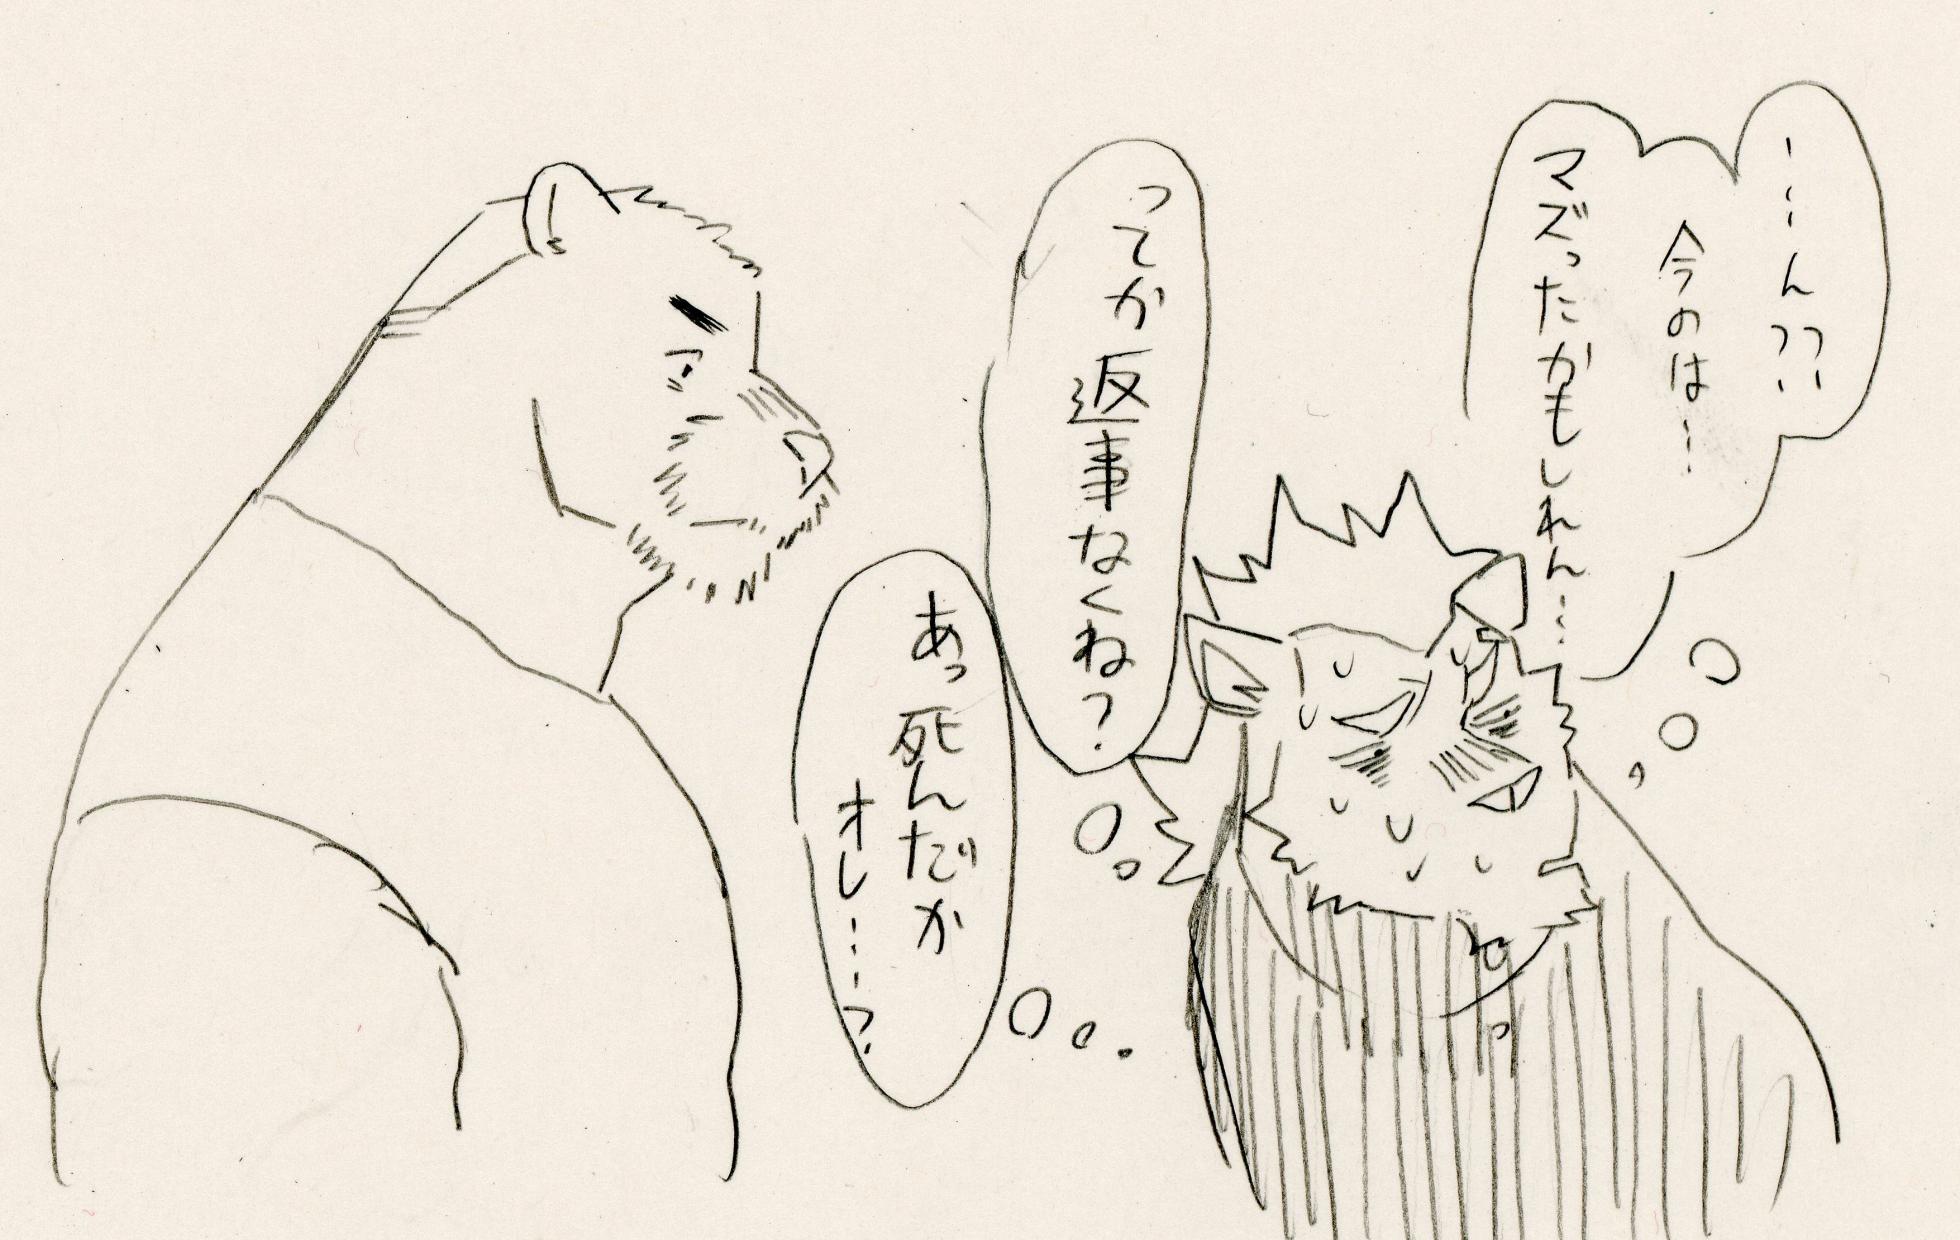 ……ん??‥
今のは…
マズったかもしれん……
ってか返事なくね?
あっ死んだか
オレ……?